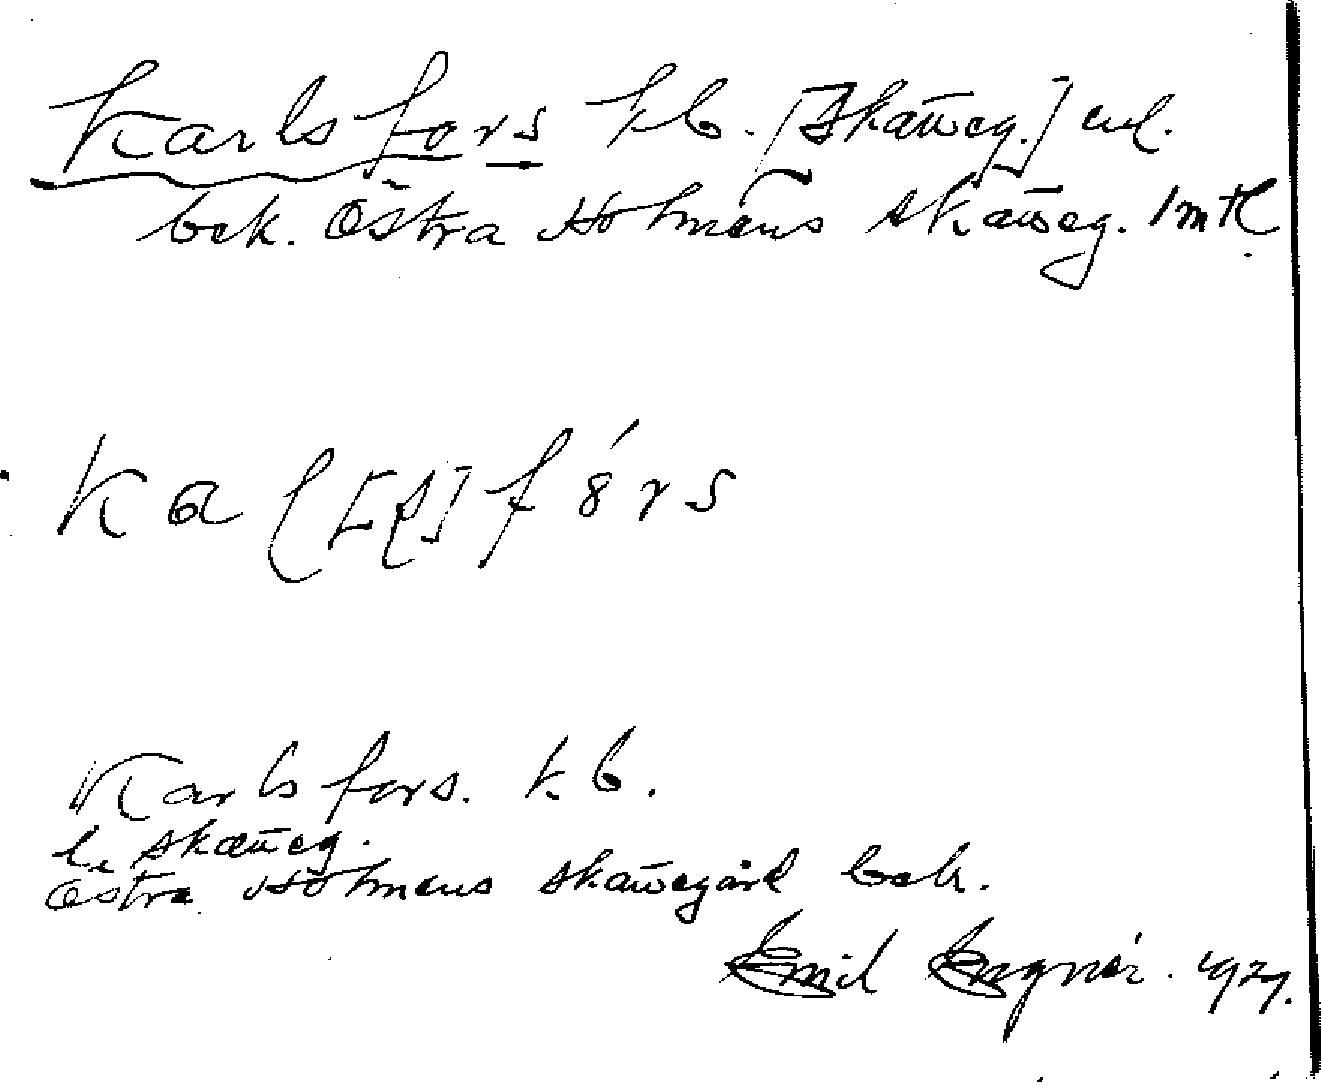 Karlsfors kb. [Skatteg.] enl.
bek. Östra Holmens skatteg. 1 mtl.
Ka l [ſ] f ó r s
Karlsfors. k. b.
l. skatteg.
Östra Holmens skattegård bek.
Emil Engnér. 1927.